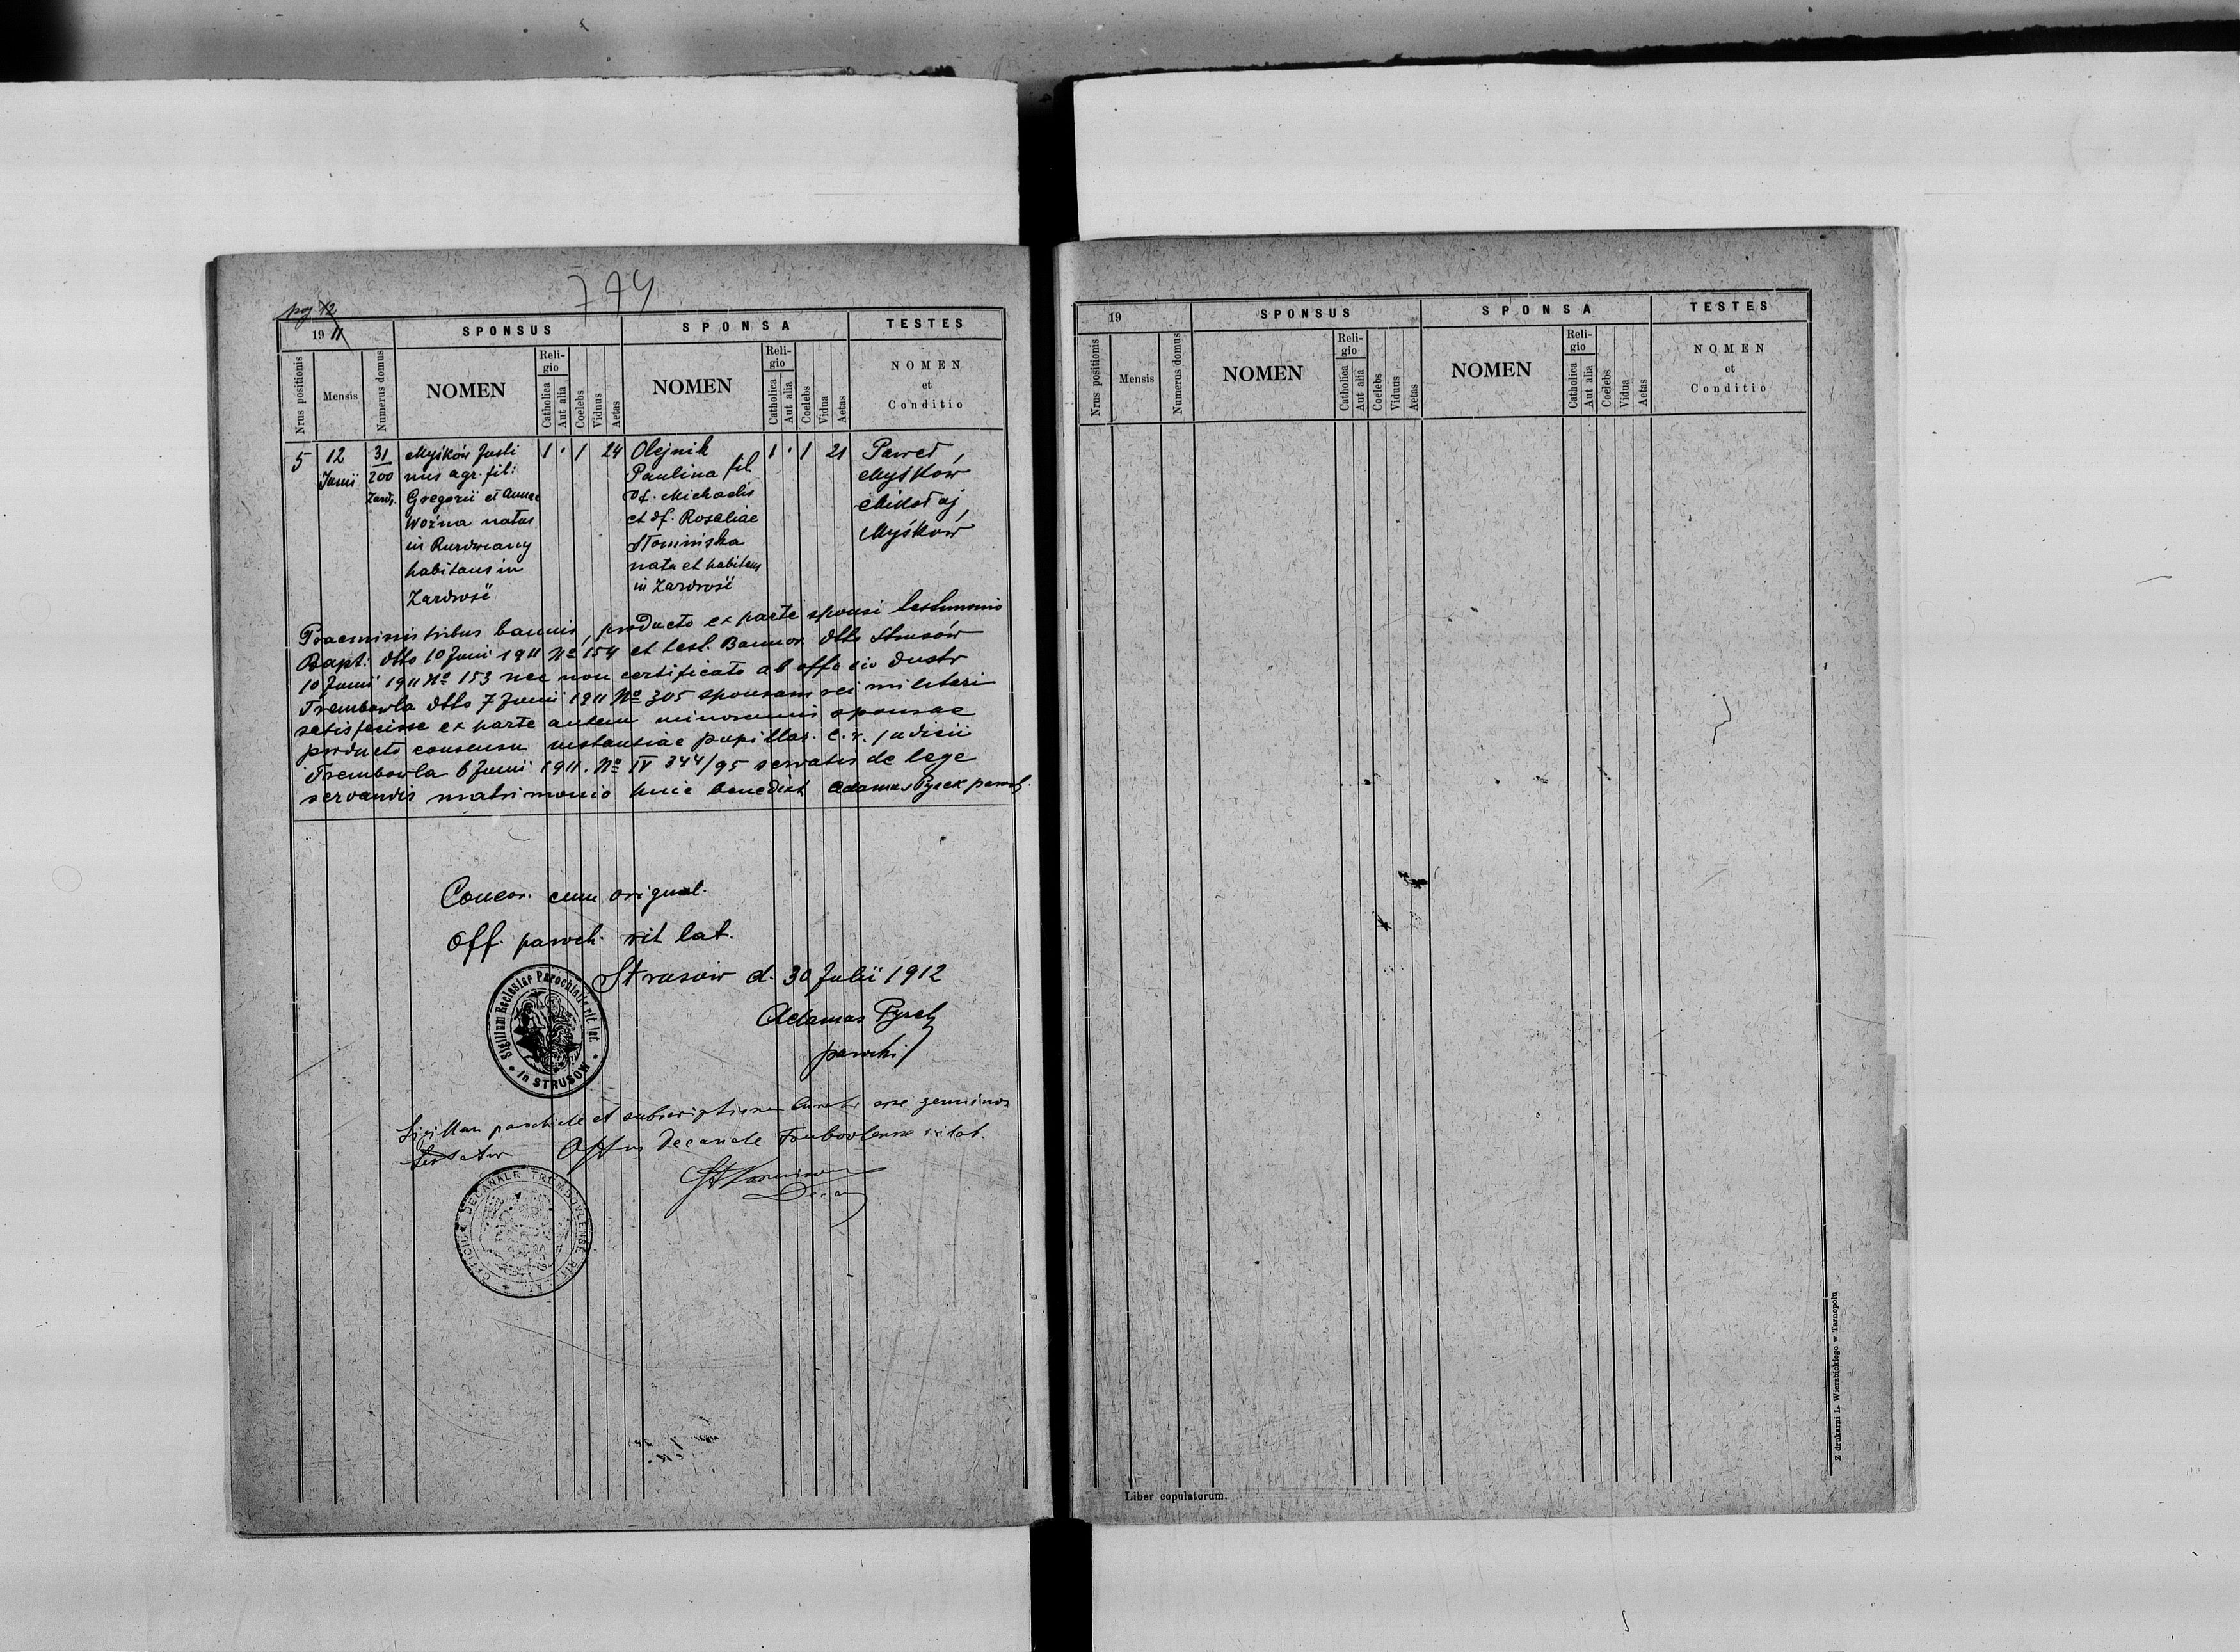 774
pg 12
1911
SPONSUS
SPONSA
TESTES
Nrus positionis
Mensis
Numerus domus
NOMEN
Religio
Catholica
Aut alia
Coelebs
Viduus
Aetas
NOMEN
Religio
Catholica
Aut alia
Coelebs
Vidua
Aetas
NOMEN
et
Conditio
5 12 31 Myśków Justi 1 · 1 24 Olejnik 1 · 1 21 Paweł
Junii 200 nus agr. fil: Paulina fil. Myśków
Zazdr. Gregorii et Annae df. Michaelis Mikołaj
Woźna natus et df. Rosaliae Myśków
in Słominska
habitans in nata et habitans
Zazdrość in Zazdrość
Praemissis tribus bannis, producto ex parte sponsi testimonio
Bapt. dtto 10 Junii 1911 No 154 et test. Bannor. dtto Strusów
10 Junii 1911 No 153 nec non certificato ab officio distr
Trembowla dtto 7 Junii 1911 No 305 sponsam rei militari
satisfecisse ex parte autem minorennis sponsae
producto consensu instantiae pupillar. c. r. judicii
Trembowla 6 Junii 1911. No IV 344/95 servatis de lege
servandis matrimonio huic benedixit Adamus Pyrek paroch.
Concor. cum original.
Off. paroch. rit lat.
Strusów d. 30 Julii 1912
Adamus Pyrek
parochus
Sigillum Ecclesiae Parochialis rit. lat.
in STRUSÓW
Sigillum parochiale et subscriptionem Curati esse genuinos
testatur Offum Decanale Trembovlense rit lat.
OFFICIUM DECANALE TREMBOVLENSE RIT. LAT.
19
SPONSUS
SPONSA
TESTES
Nrus positionis
Mensis
Numerus domus
NOMEN
Religio
Catholica
Aut alia
Coelebs
Viduus
Aetas
NOMEN
Religio
Catholica
Aut alia
Coelebs
Vidua
Aetas
NOMEN
et
Conditio
Liber copulatorum.
Z drukarni L. Wierzbickiego w Tarnopolu